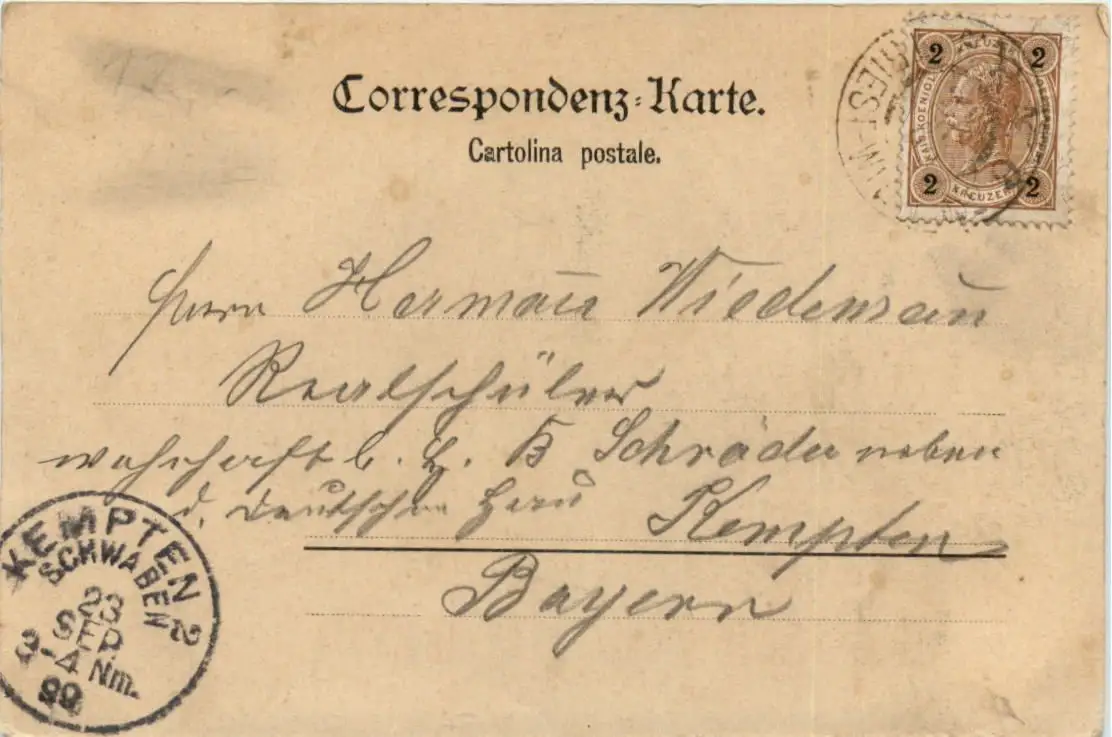 Correspondenz-Karte.
Cartolina postale.
2 2
KREUZER
2 2
Herrn Hermann Wiedemann
Realschüler
wohnhaft b. H. Schräder neben
d. Deutschen
Kempten
Bayern
KEMPTEN 2
SCHWABEN
23
SEP.
3-4 Nm.
99